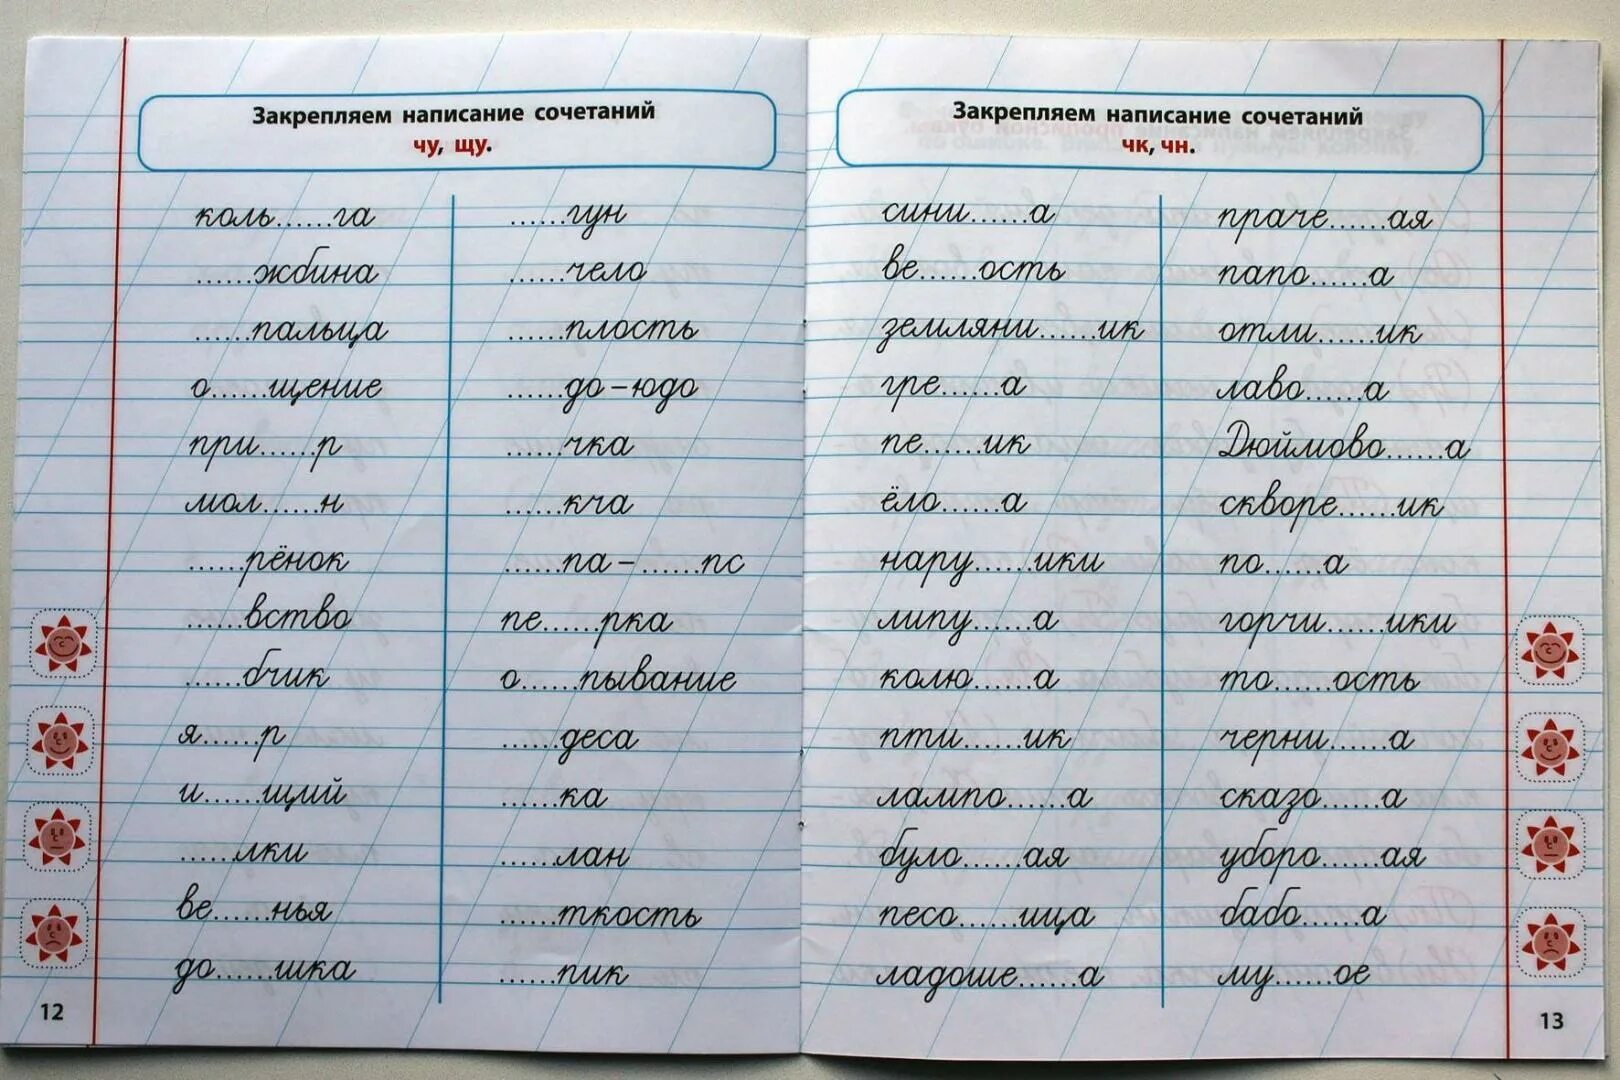 Закрепляем написание сочетаний
чу, щу.
коль......га
......жбина
......пальца
о......щение
при......р
мол......н
......рёнок
......вство
......бчик
я......р
и......щий
......лки
ве......нья
до......шка
......гун
......чело
......плость
......до-юдо
......чка
......кча
......па-......пс
пе......рка
о......пывание
......деса
......ка
......лан
......ткость
......пик
12
Закрепляем написание сочетаний
чк, чн.
сини......а
ве......ость
земляни......ик
гре......а
пе......ик
ёло......а
нару......ики
липу......а
колю......а
пти......ик
лампо......а
було......ая
песо......ица
ладоше......а
праче......ая
папо......а
отли......ик
лаво......а
Дюймово......а
скворе......ик
по......а
горчи......ики
то......ость
черни......а
сказо......а
уборо......ая
бабо......а
му......ое
13